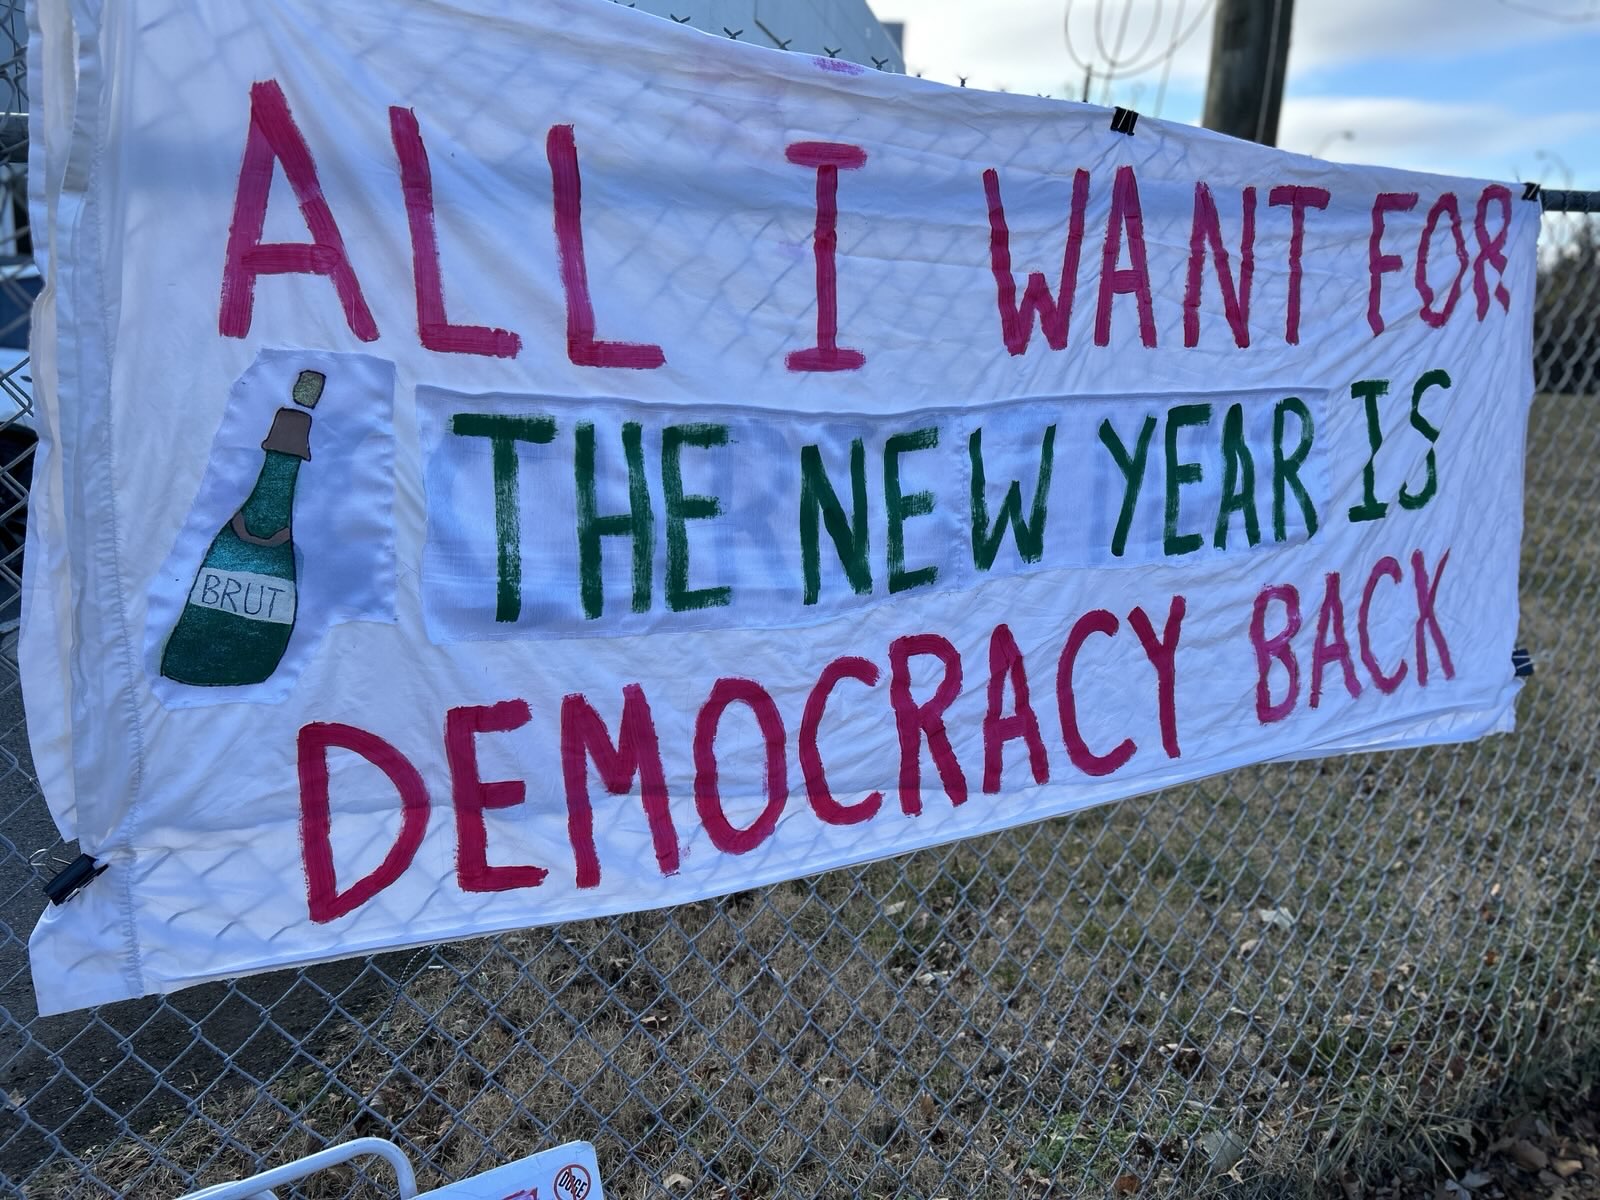 ALL I WANT FOR
THE NEW YEAR IS
BRUT
DEMOCRACY BACK
DOGE